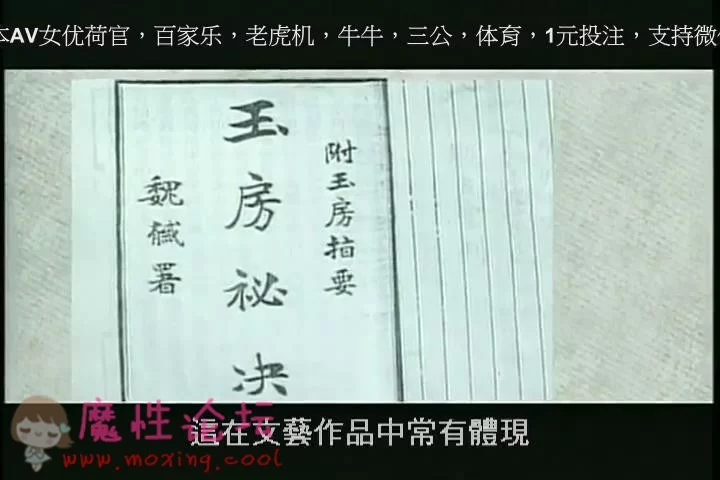 本AV女优荷官，百家乐，老虎机，牛牛，三公，体育，1元投注，支持微
附玉房指要
玉房祕決
魏馘署
魔性论坛
www.moxing.cool
這在文藝作品中常有體現